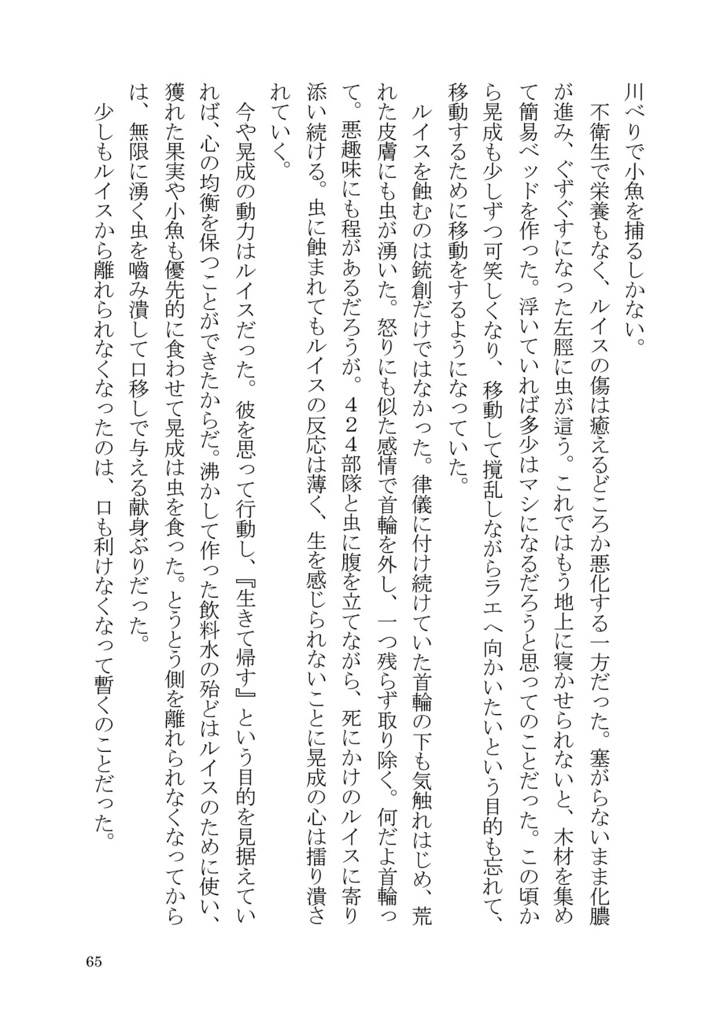 川べりで小魚を捕るしかない。
　不衛生で栄養もなく、ルイスの傷は癒えるどころか悪化する一方だった。塞がらないまま化膿
が進み、ぐずぐずになった左脛に虫が這う。これではもう地上に寝かせられないと、木材を集め
て簡易ベッドを作った。浮いていれば多少はマシになるだろうと思ってのことだった。この頃か
ら晃成も少しずつ可笑しくなり、移動して撹乱しながらラエへ向かいたいという目的も忘れて、
移動するために移動をするようになっていた。
　ルイスを蝕むのは銃創だけではなかった。律儀に付け続けていた首輪の下も気触れはじめ、荒
れた皮膚にも虫が湧いた。怒りにも似た感情で首輪を外し、一つ残らず取り除く。何だよ首輪っ
て。悪趣味にも程があるだろうが。４２４部隊と虫に腹を立てながら、死にかけのルイスに寄り
添い続ける。虫に蝕まれてもルイスの反応は薄く、生を感じられないことに晃成の心は擂り潰さ
れていく。
　今や晃成の動力はルイスだった。彼を思って行動し、『生きて帰す』という目的を見据えてい
れば、心の均衡を保つことができたからだ。沸かして作った飲料水の殆どはルイスのために使い、
獲れた果実や小魚も優先的に食わせて晃成は虫を食った。とうとう側を離れられなくなってから
は、無限に湧く虫を嚙み潰して口移しで与える献身ぶりだった。
　少しもルイスから離れられなくなったのは、口も利けなくなって暫くのことだった。
65